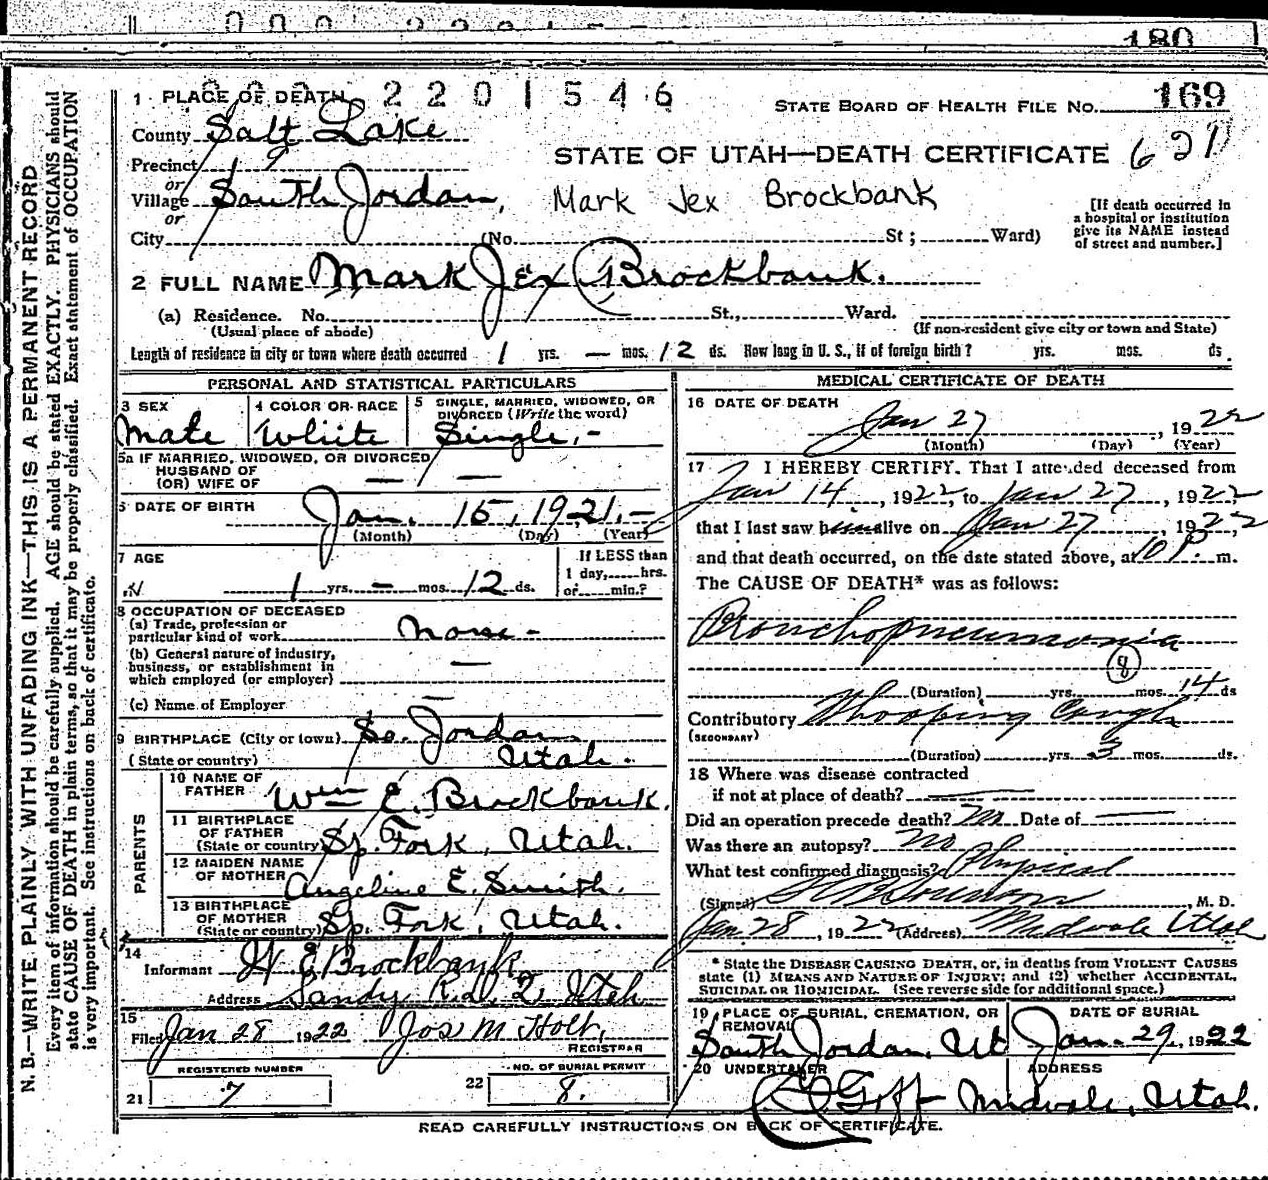 180
000 2201546
1 PLACE OF DEATH
STATE BOARD OF HEALTH FILE NO. 169
County Salt Lake
STATE OF UTAH—DEATH CERTIFICATE 621
Precinct 9
or
Village South Jordan,
Mark Jex Brockbank
or
[If death occurred in a hospital or institution give its NAME instead of street and number.]
City (No. St; Ward)
2 FULL NAME Mark Jex Brockbank.
(a) Residence. No. St., Ward.
(Usual place of abode)
(If non-resident give city or town and State)
Length of residence in city or town where death occurred 1 yrs. — mos. 12 ds. How long in U. S., if of foreign birth? yrs. mos. ds
PERSONAL AND STATISTICAL PARTICULARS
3 SEX
Male
4 COLOR OR RACE
White
5 SINGLE, MARRIED, WIDOWED, OR DIVORCED (Write the word)
Single,-
5a IF MARRIED, WIDOWED, OR DIVORCED
HUSBAND OF
(OR) WIFE OF — —
6 DATE OF BIRTH Jan. 15, 1921.-
(Month) (Day) (Year)
7 AGE
1 yrs. — mos. 12 ds.
If LESS than
1 day, hrs.
or min.?
8 OCCUPATION OF DECEASED
(a) Trade, profession or
particular kind of work None -
(b) General nature of industry,
business, or establishment in
which employed (or employer) —
(c) Name of Employer —
9 BIRTHPLACE (City or town) So. Jordan
(State or country) Utah.
PARENTS
10 NAME OF
FATHER Wm E. Brockbank.
11 BIRTHPLACE
OF FATHER
(State or country) Sp. Fork, Utah.
12 MAIDEN NAME
OF MOTHER Angeline E. Smith.
13 BIRTHPLACE
OF MOTHER
(State or country) Sp. Fork, Utah.
14
Informant W E Brockbank
Address Sandy R.d. 2 Utah
15
Filed Jan 28 1922 Jos M Holt,
REGISTRAR
REGISTERED NUMBER
21 7
NO. OF BURIAL PERMIT
22 8.
MEDICAL CERTIFICATE OF DEATH
16 DATE OF DEATH
Jan 27, 1922
(Month) (Day) (Year)
17 I HEREBY CERTIFY. That I attended deceased from
Jan 14, 1922, to Jan 27, 1922,
that I last saw him alive on Jan 27 1922,
and that death occurred, on the date stated above, at 10 P. m.
The CAUSE OF DEATH* was as follows:
Bronchopneumonia
8
(Duration) yrs. mos. 14 ds
Contributory Whooping Cough
(SECONDARY)
(Duration) yrs. 3 mos. ds.
18 Where was disease contracted
if not at place of death? —
Did an operation precede death? No Date of —
Was there an autopsy? No
What test confirmed diagnosis? Physical
(Signed) , M. D.
Jan 28, 1922 (Address) Midvale Utah
* State the DISEASE CAUSING DEATH, or, in deaths from VIOLENT CAUSES
state (1) MEANS AND NATURE OF INJURY; and (2) whether ACCIDENTAL,
SUICIDAL OR HOMICIDAL. (See reverse side for additional space.)
19 PLACE OF BURIAL, CREMATION, OR
REMOVAL
South Jordan, Ut
DATE OF BURIAL
Jan. 29, 1922
20 UNDERTAKER
Goff
ADDRESS
Midvale, Utah.
READ CAREFULLY INSTRUCTIONS ON BACK OF CERTIFICATE.
N. B.—WRITE PLAINLY WITH UNFADING INK—THIS IS A PERMANENT RECORD
Every item of information should be carefully supplied. AGE should be stated EXACTLY. PHYSICIANS should
state CAUSE OF DEATH in plain terms, so that it may be properly classified. Exact statement of OCCUPATION
is very important. See instructions on back of certificate.